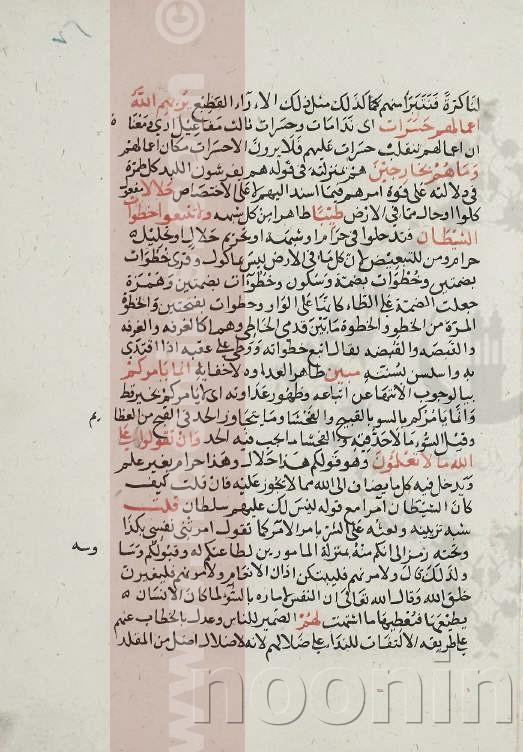 لنا كرة فنتبرأ منهم كذلك مثل ذلك الاراء القطيع يريهم الله
اعمالهم حسرات اى ندامات وحسرات ثالث مفاعيل ارى ومعناه
ان اعمالهم تنقلب حسرات عليهم فلا يرون الا حسرات مكان اعمالهم
وما هم بخارجين هم بمنزلته فى قوله هم يفرشون اللبد كل طمرة
فى دلالته على قوة امرهم فيما اسند اليهم لا على الاختصاص حلالا مفعول
كلوا او حال مما فى الارض طيبا طاهرا من كل شبهه ولا تتبعوا خطوات
الشيطان فتدخلوا فى حرام او شبهه او تحريم حلال او تحليل
حرام ومن للتبعيض لان كل ما فى الارض ليس بماكول وقرى خطوات
بضمتين وخطوات بضمة وسكون وخطوات بضمتين وهمزة
جعلت الضمة على الطاء كانها على الواو وخطوات بفتحتين والخطوة
المرة من الخطو والخطوة ما بين قدمى الخاطى وهما كالغرفه والغرفه
والقبضه والقبضه يقال اتبع خطواته ووطى على عقبه اذا اقتدى
به واستن بسنته مبين ظاهر العداوه لا خفا به انما يامركم
بيان لوجوب الانتهاء عن اتباعه وظهور عداوته اى لا يامركم بخير قط
وانما يامركم بالسو بالقبيح والفحشا وما يتجاوز الحد فى القبح من العظا
يم
وقيل السوء ما لا حد فيه والفحشا ما يجب فيه الحد وان تقولوا على
الله ما لا تعلمون وهو قولكم هذا حلال وهذا حرام بغير علم
ويدخل فيه كل ما يضاف الى الله مما لا يجوز عليه فان قلت كيف
كان الشيطان امرا مع قوله ليس لك عليهم سلطان قلت
شبه تزيينه وبعثه على الشر بامر الامر كما تقول امرتنى نفسى بكذا
وتحته رمز الى انكم منه بمنزلة المامورين لطاعتكم له وقبولكم وسا
وسه
ولذلك قال ولامرنهم فليبتكن اذان الانعام ولامرنهم فليغيرن
خلق الله وقال الله تعالى ان النفس لاماره بالسو لما كان الانسان
يطيعها فيعطيها ما اشتهت لهم الضمير للناس وعدل بالخطاب عنهم
على طريقه الالتفات للندا على ضلالهم لانه لا ضال اضل من المقلد
noonin